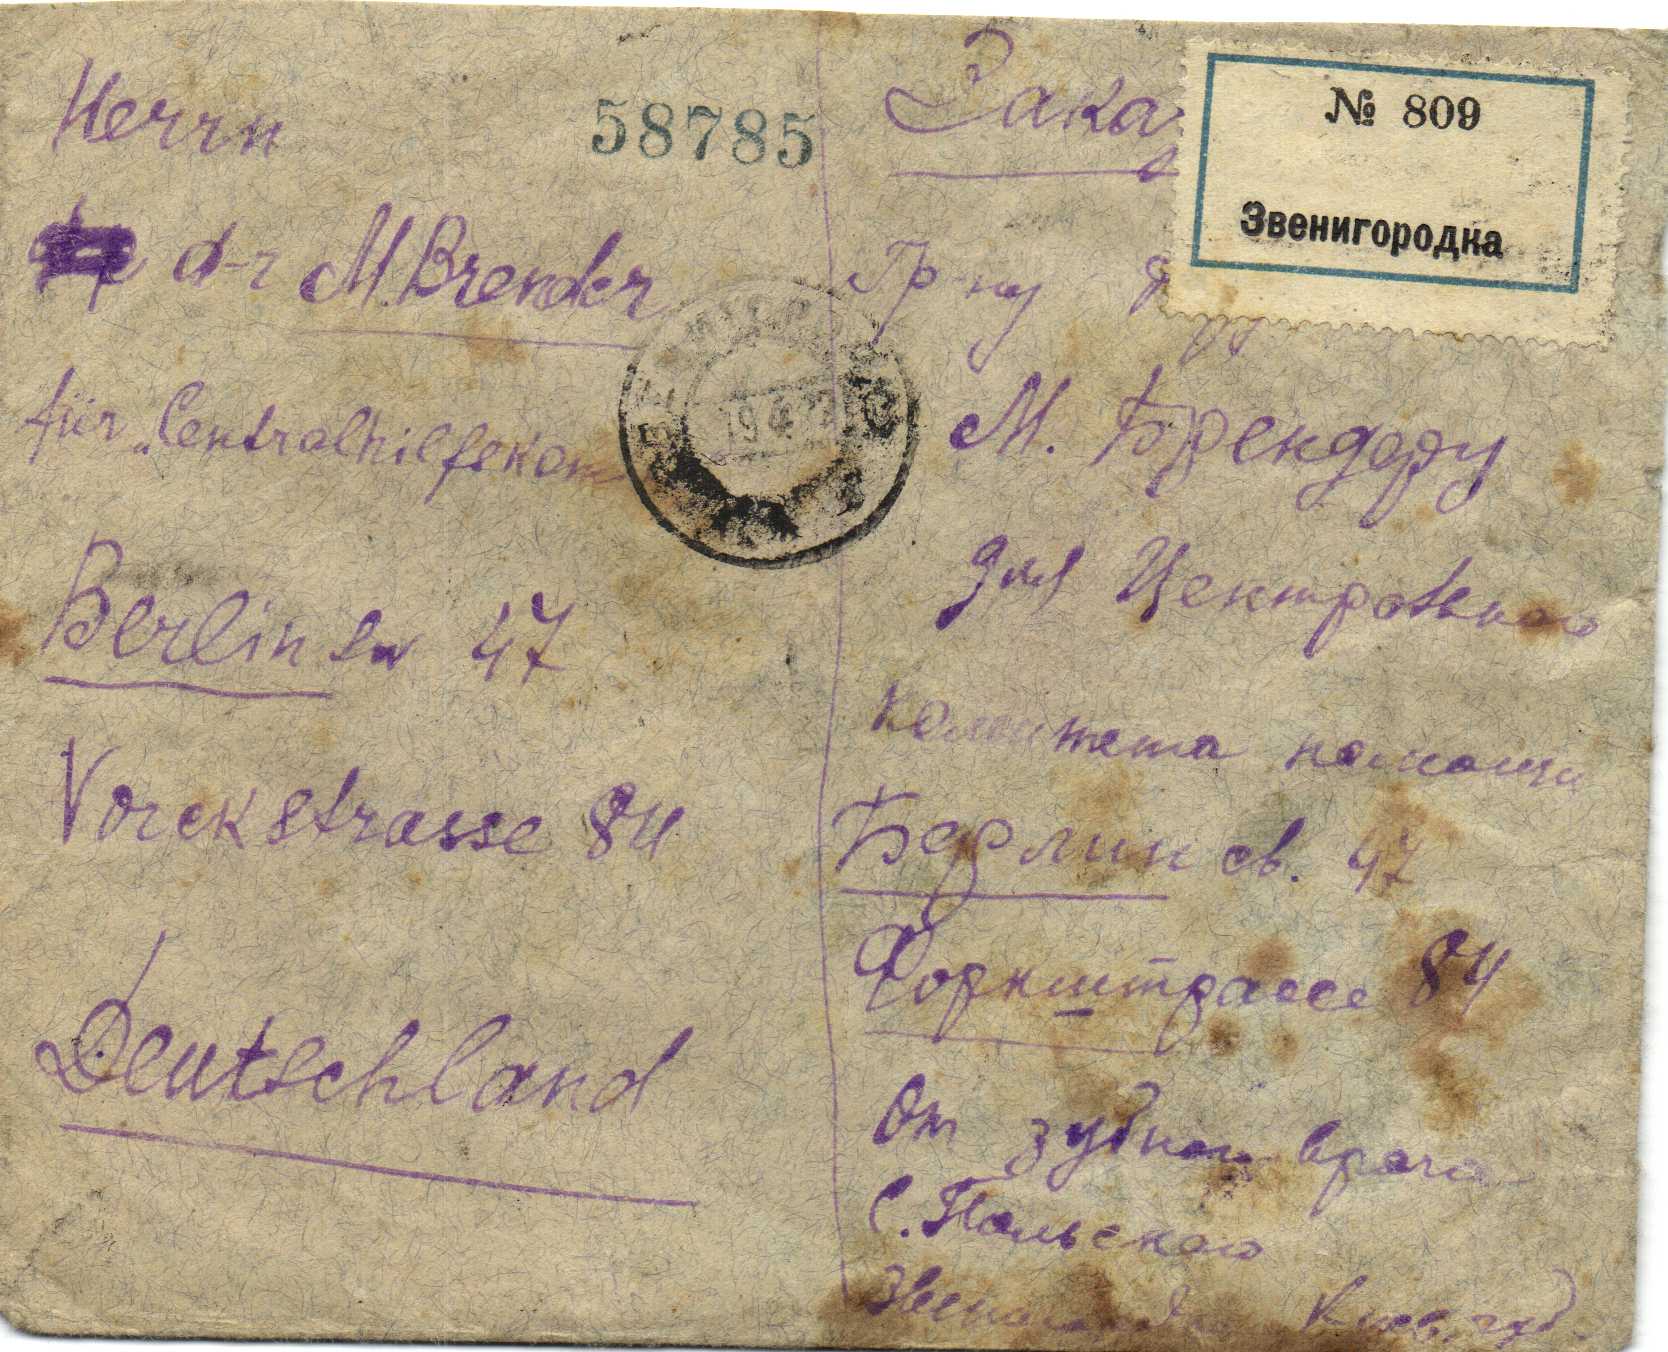 Herrn
58785
d-r M. Brender
für "Centralhilfskom
Berlin sw 47
Vorckstrasse 84
Deutschland
Зака
№ 809
Звенигородка
Гр-ну
М. Брендеру
для Центрального
комитета помощи
Берлин св. 47
Форкштрассе 84
От зубного врача
С. Польского
Звенигородка Киев. губ.